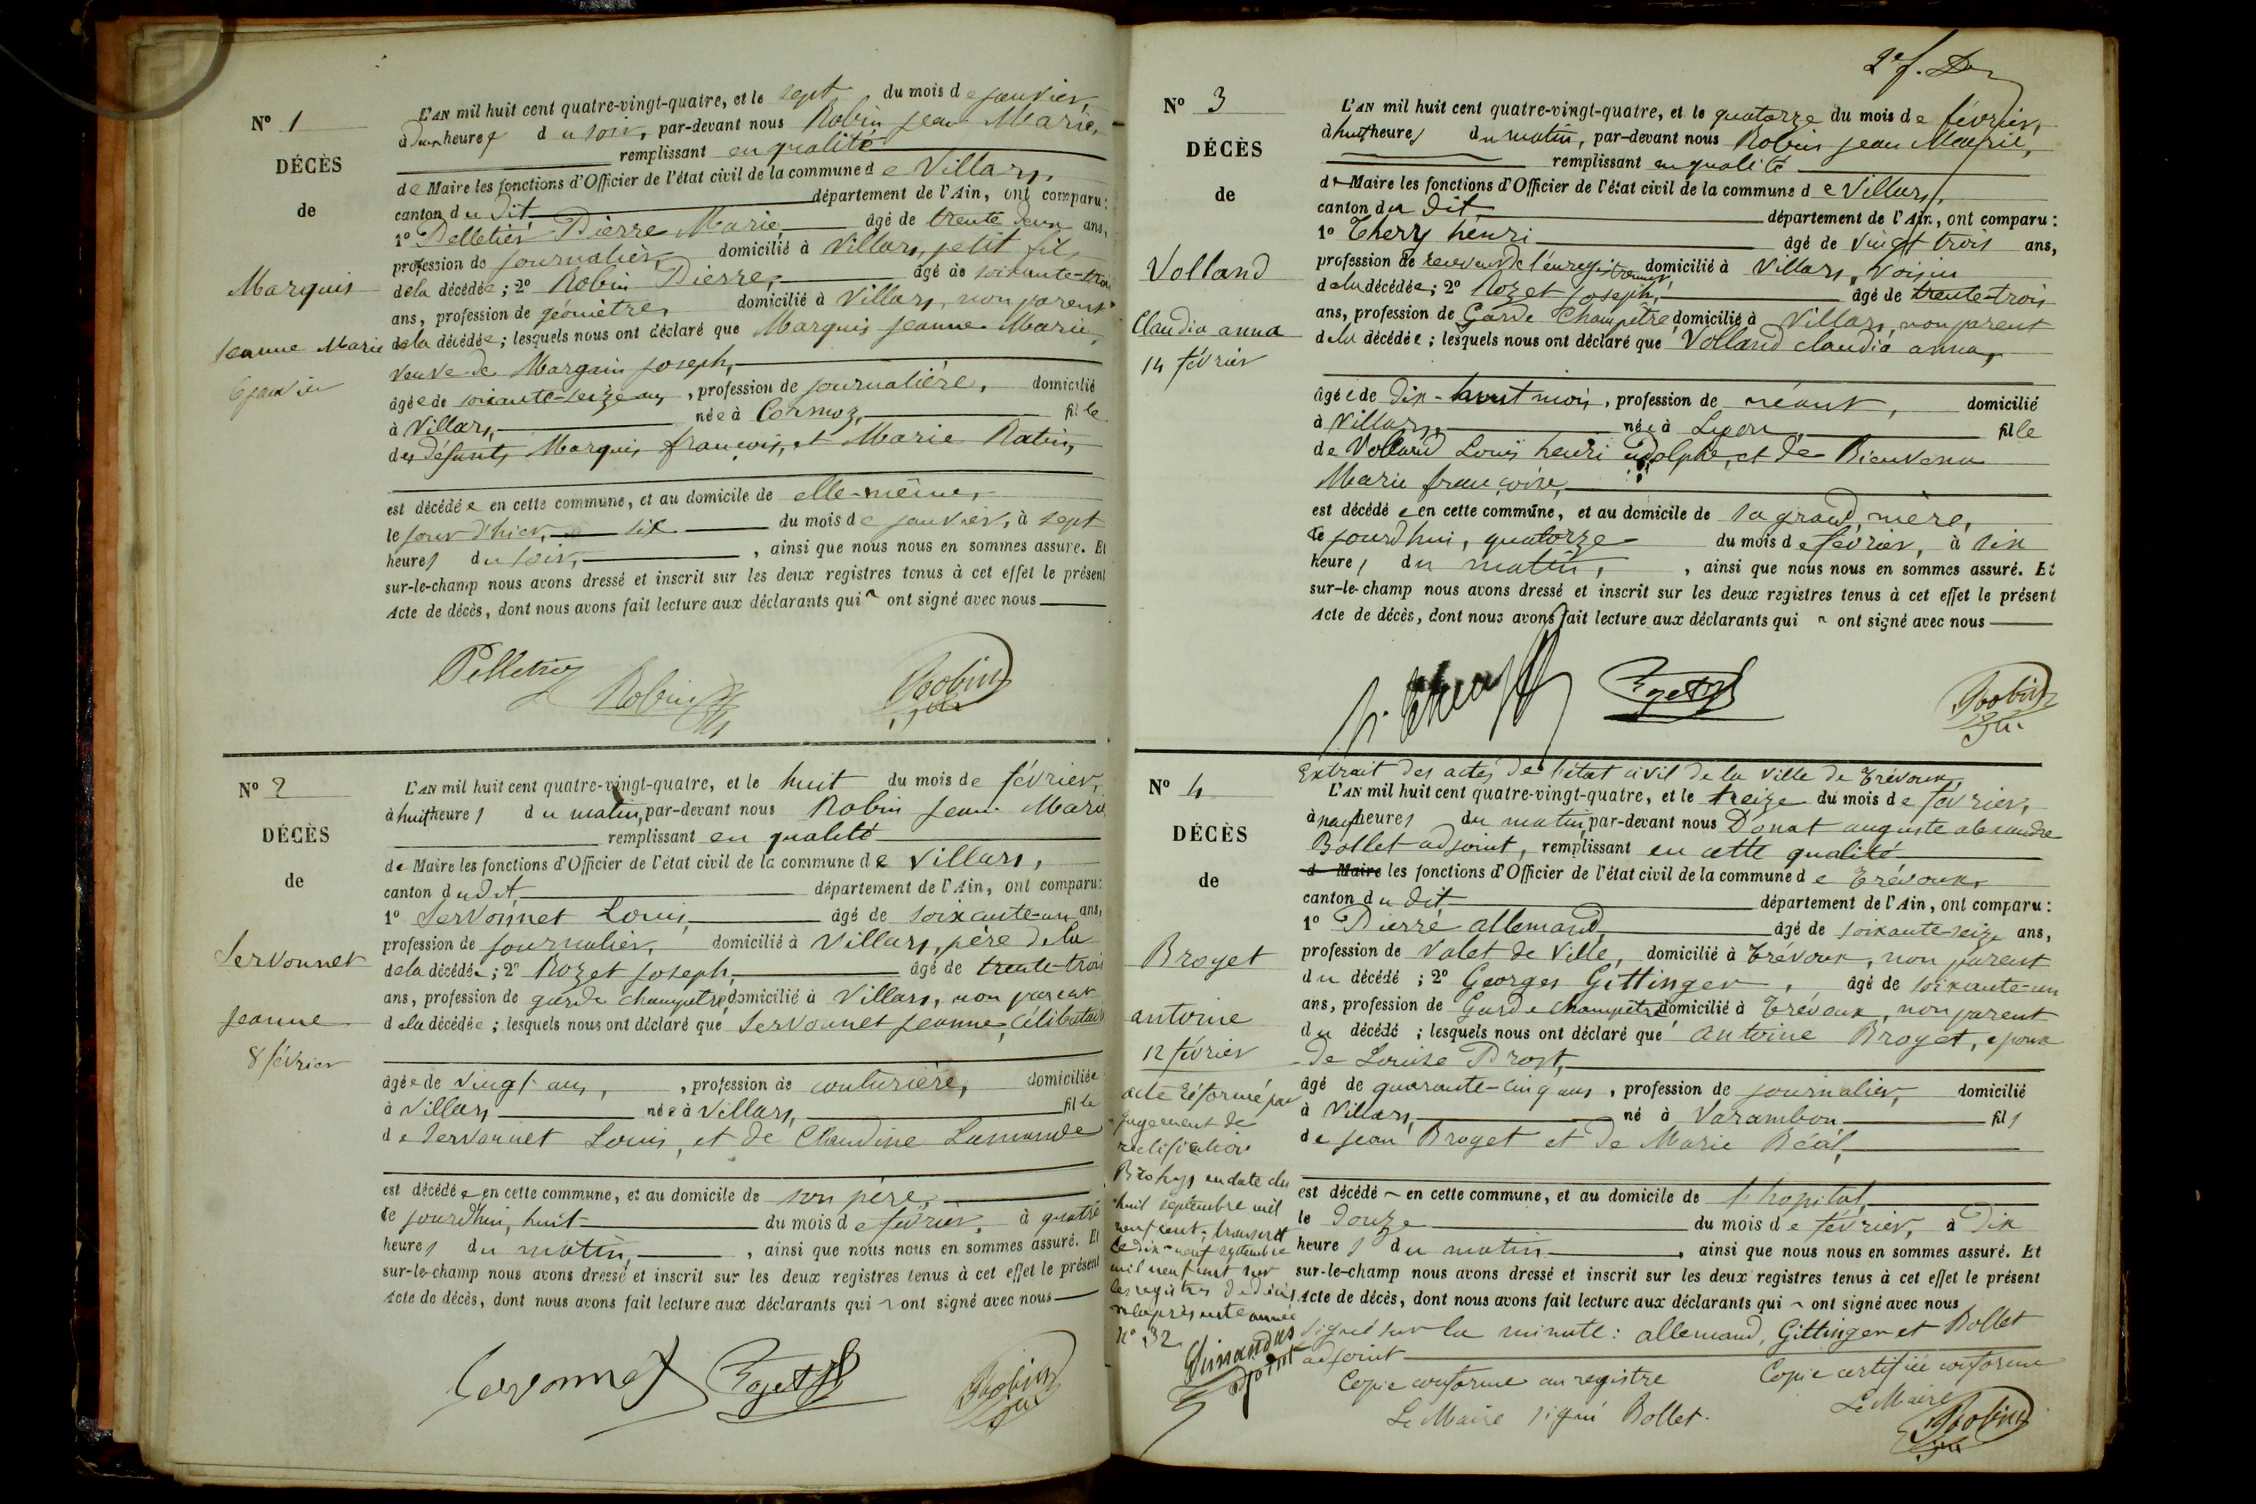 N° 1
DÉCÈS
de
Marquis
Jeanne Marie
6 janvier
L'AN mil huit cent quatre-vingt-quatre, et le sept du mois de janvier,
à heures du soir, par-devant nous Robin Jean Marie,
remplissant en qualité
de Maire les fonctions d'Officier de l'état civil de la commune de Villars,
canton du dit département de l'Ain, ont comparu:
1° Pelletier Pierre Marie, âgé de trente deux ans,
profession de journalier, domicilié à Villars, petit fils
de la décédée; 2° Robin Pierre, âgé de soixante-trois
ans, profession de géomètre, domicilié à Villars, non parent
de la décédée; lesquels nous ont déclaré que Marquis Jeanne Marie,
veuve de Joseph,
âgée de soixante-seize ans, profession de journalière, domicilié
à Villars, née à Cormoz, fille
des défunts Marquis françois, et Marie
est décédée en cette commune, et au domicile de elle-même,
le jour d'hier, six du mois de janvier, à sept
heures du soir, ainsi que nous nous en sommes assuré. Et
sur-le-champ nous avons dressé et inscrit sur les deux registres tenus à cet effet le présent
Acte de décès, dont nous avons fait lecture aux déclarants qui ont signé avec nous
Pelletier Robin Robin
N° 2
DÉCÈS
de
Servonnet
Jeanne
8 février
L'AN mil huit cent quatre-vingt-quatre, et le huit du mois de février,
à huit heures du matin, par-devant nous Robin Jean Marie
remplissant en qualité
de Maire les fonctions d'Officier de l'état civil de la commune de Villars,
canton du dit département de l'Ain, ont comparu:
1° Servonnet Louis, âgé de soixante-un ans,
profession de journalier, domicilié à Villars, père de la
de la décédée; 2° Rozet Joseph, âgé de trente-trois
ans, profession de garde champêtre, domicilié à Villars, non parent
de la décédée; lesquels nous ont déclaré que Servonnet Jeanne, célibataire
âgée de vingt ans, profession de couturière, domiciliée
à Villars née à Villars, fille
de Servonnet Louis, et de Claudine
est décédée en cette commune, et au domicile de son père,
ce jourd'hui, huit du mois de février, à quatre
heures du matin, ainsi que nous nous en sommes assuré. Et
sur-le-champ nous avons dressé et inscrit sur les deux registres tenus à cet effet le présent
Acte de décès, dont nous avons fait lecture aux déclarants qui ont signé avec nous
Servonnet Rozet Robin
N° 3
DÉCÈS
de
Volland
Claudia anna
14 février
L'AN mil huit cent quatre-vingt-quatre, et le quatorze du mois de février,
à huit heures du matin, par-devant nous Robin Jean Marie,
remplissant en qualité
de Maire les fonctions d'Officier de l'état civil de la commune de Villars,
canton du dit département de l'Ain, ont comparu:
1° Thery henri âgé de vingt trois ans,
profession de receveur de l'enregistrement, domicilié à Villars, voisin
de la décédée; 2° Rozet Joseph, âgé de trente-trois
ans, profession de Garde Champêtre, domicilié à Villars, non parent
de la décédée; lesquels nous ont déclaré que Volland claudia anna,
âgée de dix-huit mois, profession de néant, domicilié
à Villars, née à Lyon fille
de Volland Louis henri adolphe, et de Bienvenu
Marie françoise,
est décédée en cette commune, et au domicile de sa grand mère,
ce jourd'hui, quatorze du mois de février, à six
heures du matin, ainsi que nous nous en sommes assuré. Et
sur-le-champ nous avons dressé et inscrit sur les deux registres tenus à cet effet le présent
Acte de décès, dont nous avons fait lecture aux déclarants qui ont signé avec nous
h. Thery Rozet Robin
N° 4
DÉCÈS
de
Broyet
antoine
12 février
acte réformé par
jugement de
rectification
en date du
huit septembre mil
neuf cent, transcrit
le dix-neuf septembre
mil neuf cent sur
les registres de décès
de la présente année
N° 32
adjoint
Extrait des actes de l'état civil de la ville de Trévoux,
L'AN mil huit cent quatre-vingt-quatre, et le treize du mois de février,
à neuf heures du matin, par-devant nous Donat auguste alexandre
Bollet adjoint, remplissant en cette qualité
de Maire les fonctions d'Officier de l'état civil de la commune de Trévoux,
canton du dit département de l'Ain, ont comparu:
1° Pierre allemand, âgé de soixante-seize ans,
profession de Valet de Ville, domicilié à Trévoux, non parent
du décédé; 2° Georges Gittinger, âgé de soixante-un
ans, profession de Garde champêtre domicilié à Trévoux, non parent
du décédé; lesquels nous ont déclaré que antoine Broyet, époux
de Louise Prost,
âgé de quarante-cinq ans, profession de journalier, domicilié
à Villars, né à Varambon, fils
de Jean Broyet et de Marie Réal,
est décédé en cette commune, et au domicile de l'hopital,
le douze du mois de février, à dix
heures du matin, ainsi que nous nous en sommes assuré. Et
sur-le-champ nous avons dressé et inscrit sur les deux registres tenus à cet effet le présent
Acte de décès, dont nous avons fait lecture aux déclarants qui ont signé avec nous
signé sur la minute: allemand, Gittinger et Bollet
adjoint
Copie conforme au registre Copie certifiée conforme
Le Maire signé Bollet. Le Maire
Robin